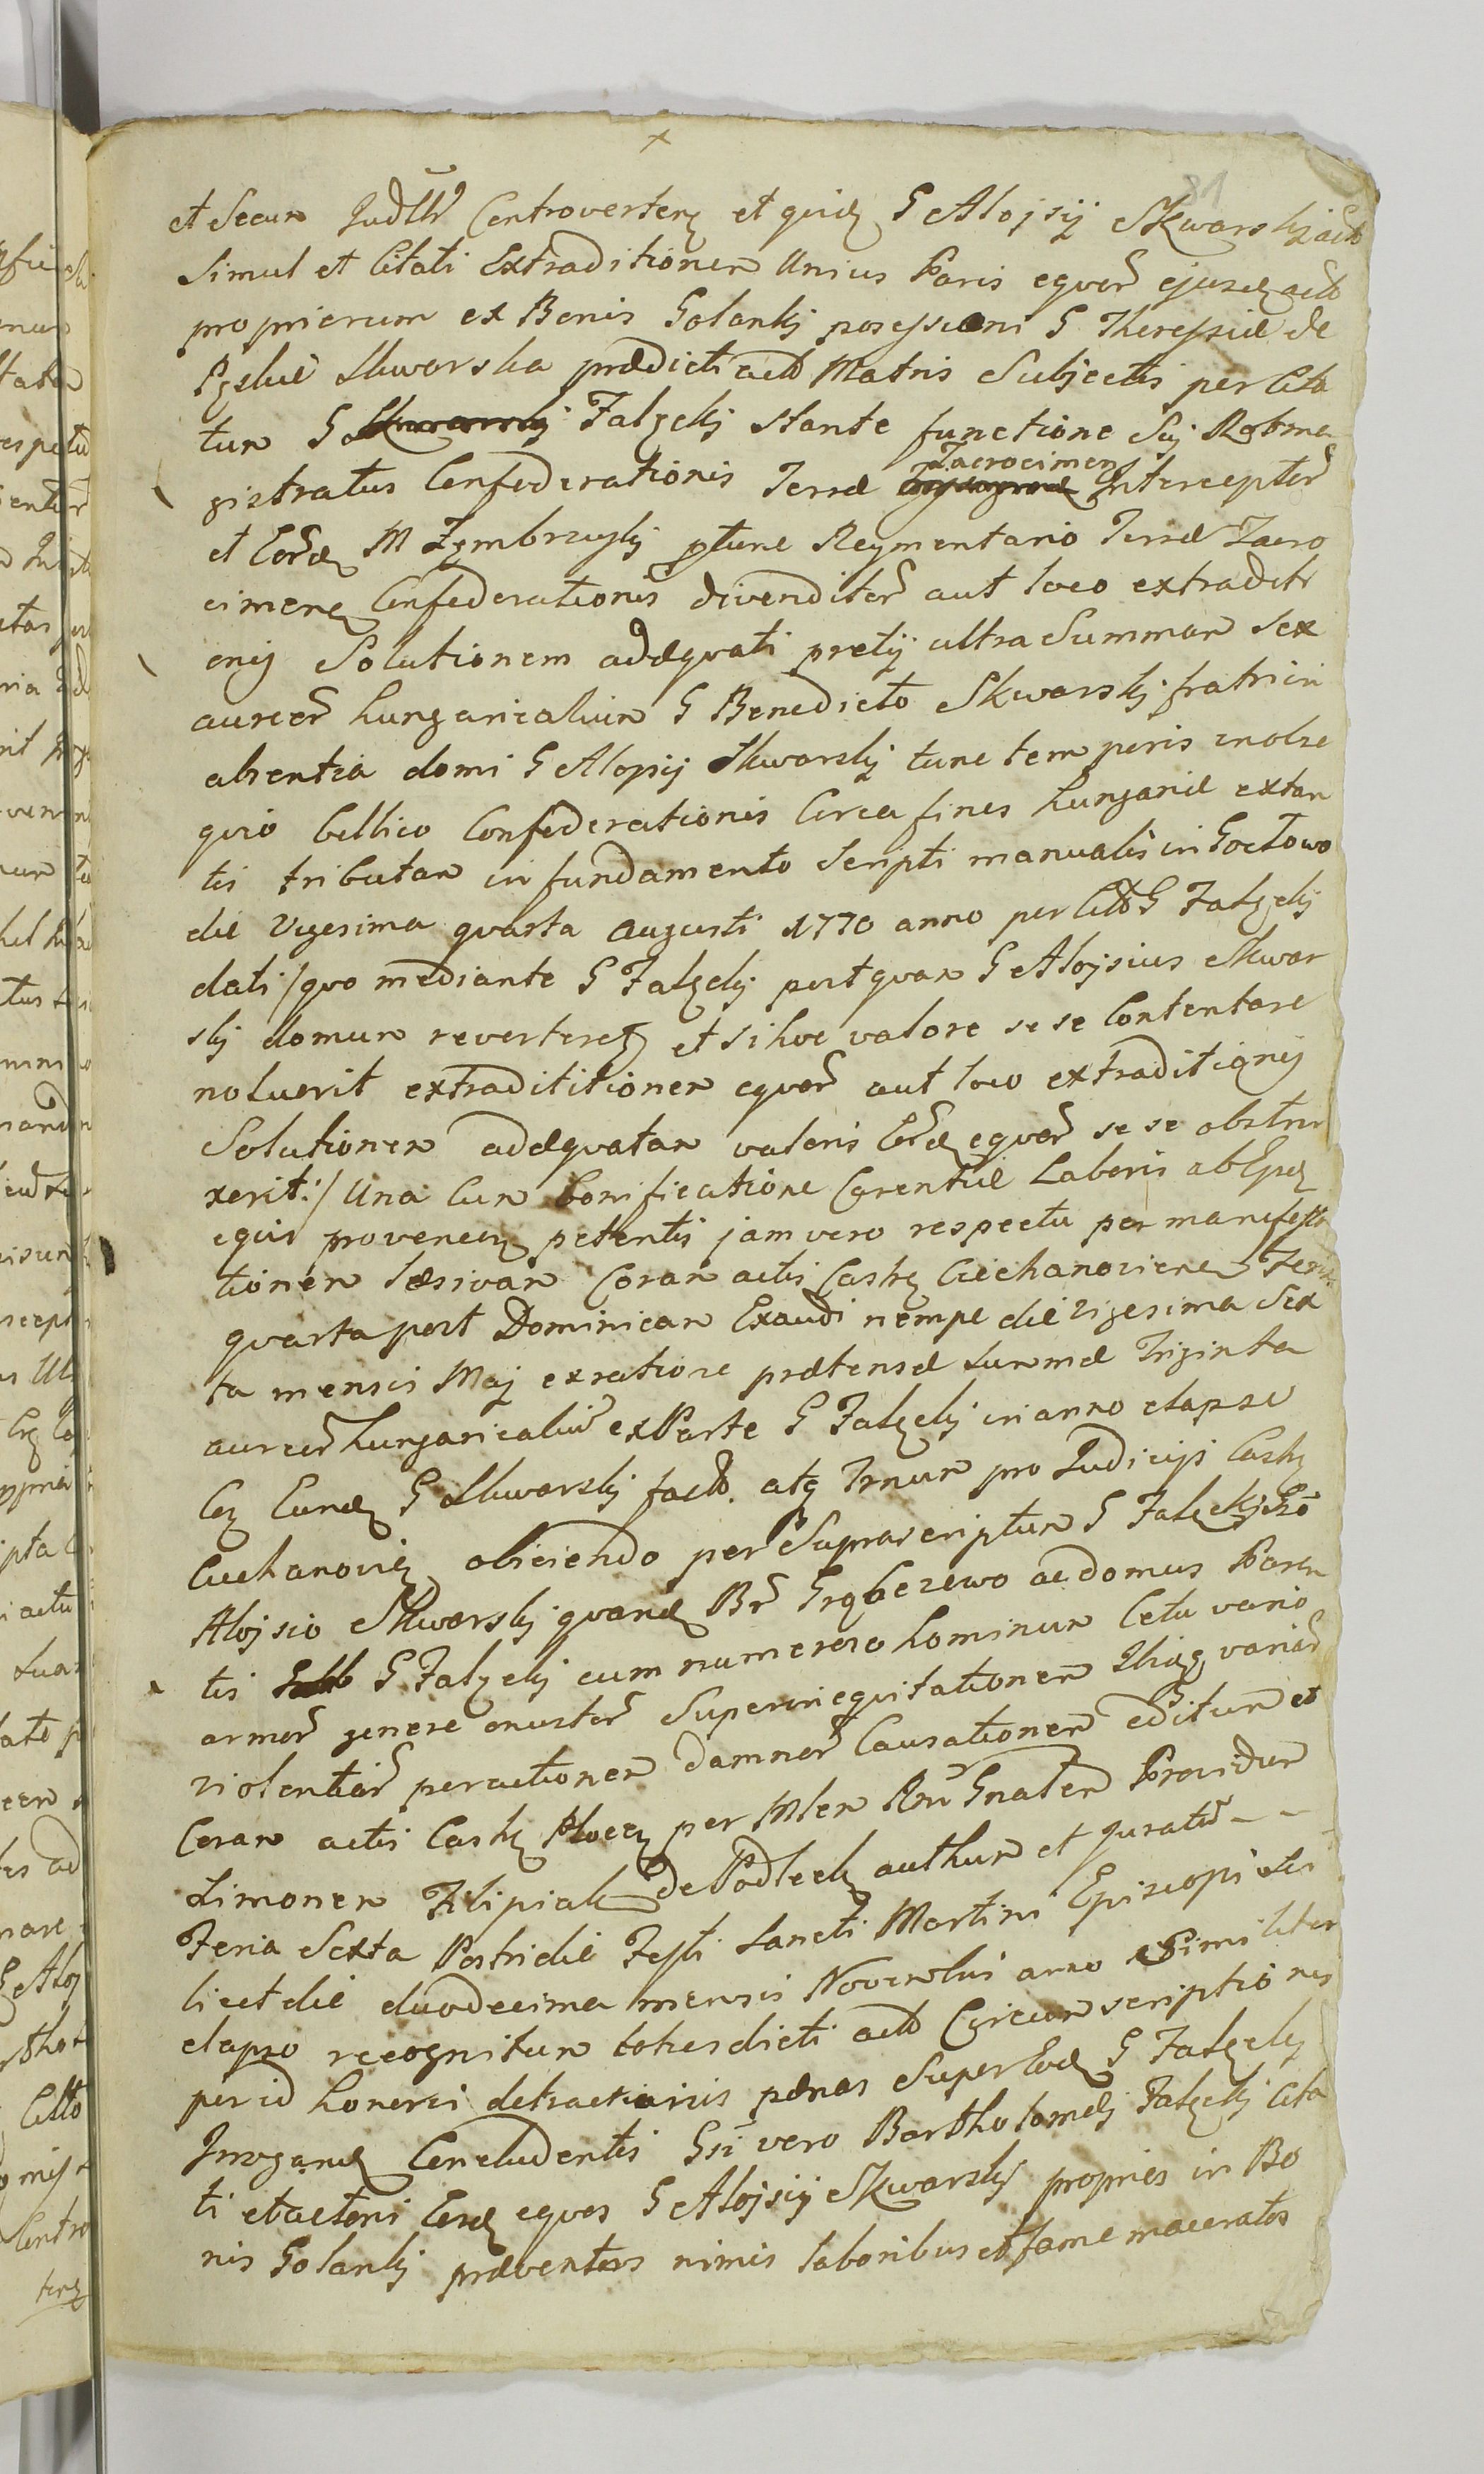 81
et Secum Judltr Controverten et quid G Alojsij Skwarskj acto
Simul et Citati Extraditionem Unius Paris equor ejusd acto
propriorum ex Bonis Golankj possessioni G Theressiæ de
Skwarska prædicti acto Matris Subjectis per Cita
tum G Falzckj stante functione Sui Rotma
gistratus Confæderationis Terræ Zacrocimens Interceptor
et Eord M Zembrzuskj ptunc Regmentario Terræ Zacro
cimens Confæderationis divenditor aut loco extraditi
onis Solutionem adæquati pretij ultra Summam Sex
aureor hungaricalium G Benedicto Skwarskj fratri in
absentia domi G Alojsij Skwarskj tunc temporis in obse
quio bellico Confæderationis Circa fines hungariæ extan
tis tributam in fundamento Scripti manualis in Goctowo
die Vigesima quarta Augusti 1770 anno per Citto G Falzckj
dati /quo mediante G Falzckj postquam G Alojsius Skwar
skj domum reverteret et si hoc valore se se Contentare
noluerit extradititionem equor aut loco extraditignis
Solutionem adæquatam valoris Eord equor se se obstrin
xerit:/ Una Cum bonificatione Carentiæ Laboris ab Eisd
equis provenien petentis jam vero respectu per manifesta
tionem læsivam Coram actis Castr Ciechanoviens Feria
quarta post Dominicam Exaudi nempe die vigesima Sex
ta mensis Maj ex ratione prætensæ Summæ Triginta
aureor hungaricaliũ ex Parte G Falzckj in anno elapso
Eund G Skwarskj facto. atq Trnum pro Judicijs Castr
Ciechanovien obiiciendo per Suprascriptum G Falzckj Gso
Alojsio Skwarskj quand Br Grąbczewo ac domus Paren
tis G Falzckj cum numeroso hominum Cetu vario
armor genere onustor Superinequitationem Ibiq variar
violentiar percutionem damnor Causationem editum et
Coram actis Castr Plocen per Mlem Rni Gnalem Providum
Simonem Filipiak de Podleck authum et juratũ - -
Feria Sexta Postridie Festi Sancti Martini Episcopi sci
licet die duodecima mensis Novembris anno Similiter
elapso recognitum totiesdicti acto Circumscriptiones
per id honoris detractionis pænas Super Eod G Falzckj
Irrogand Concludentis Gsi vero Bartholomæj Falzckj Cita
ti et actoris Eosd equos G Alojsij Skwarskj proprios in Bo
nis Golankj præventos nimis laboribus et fame maceratos